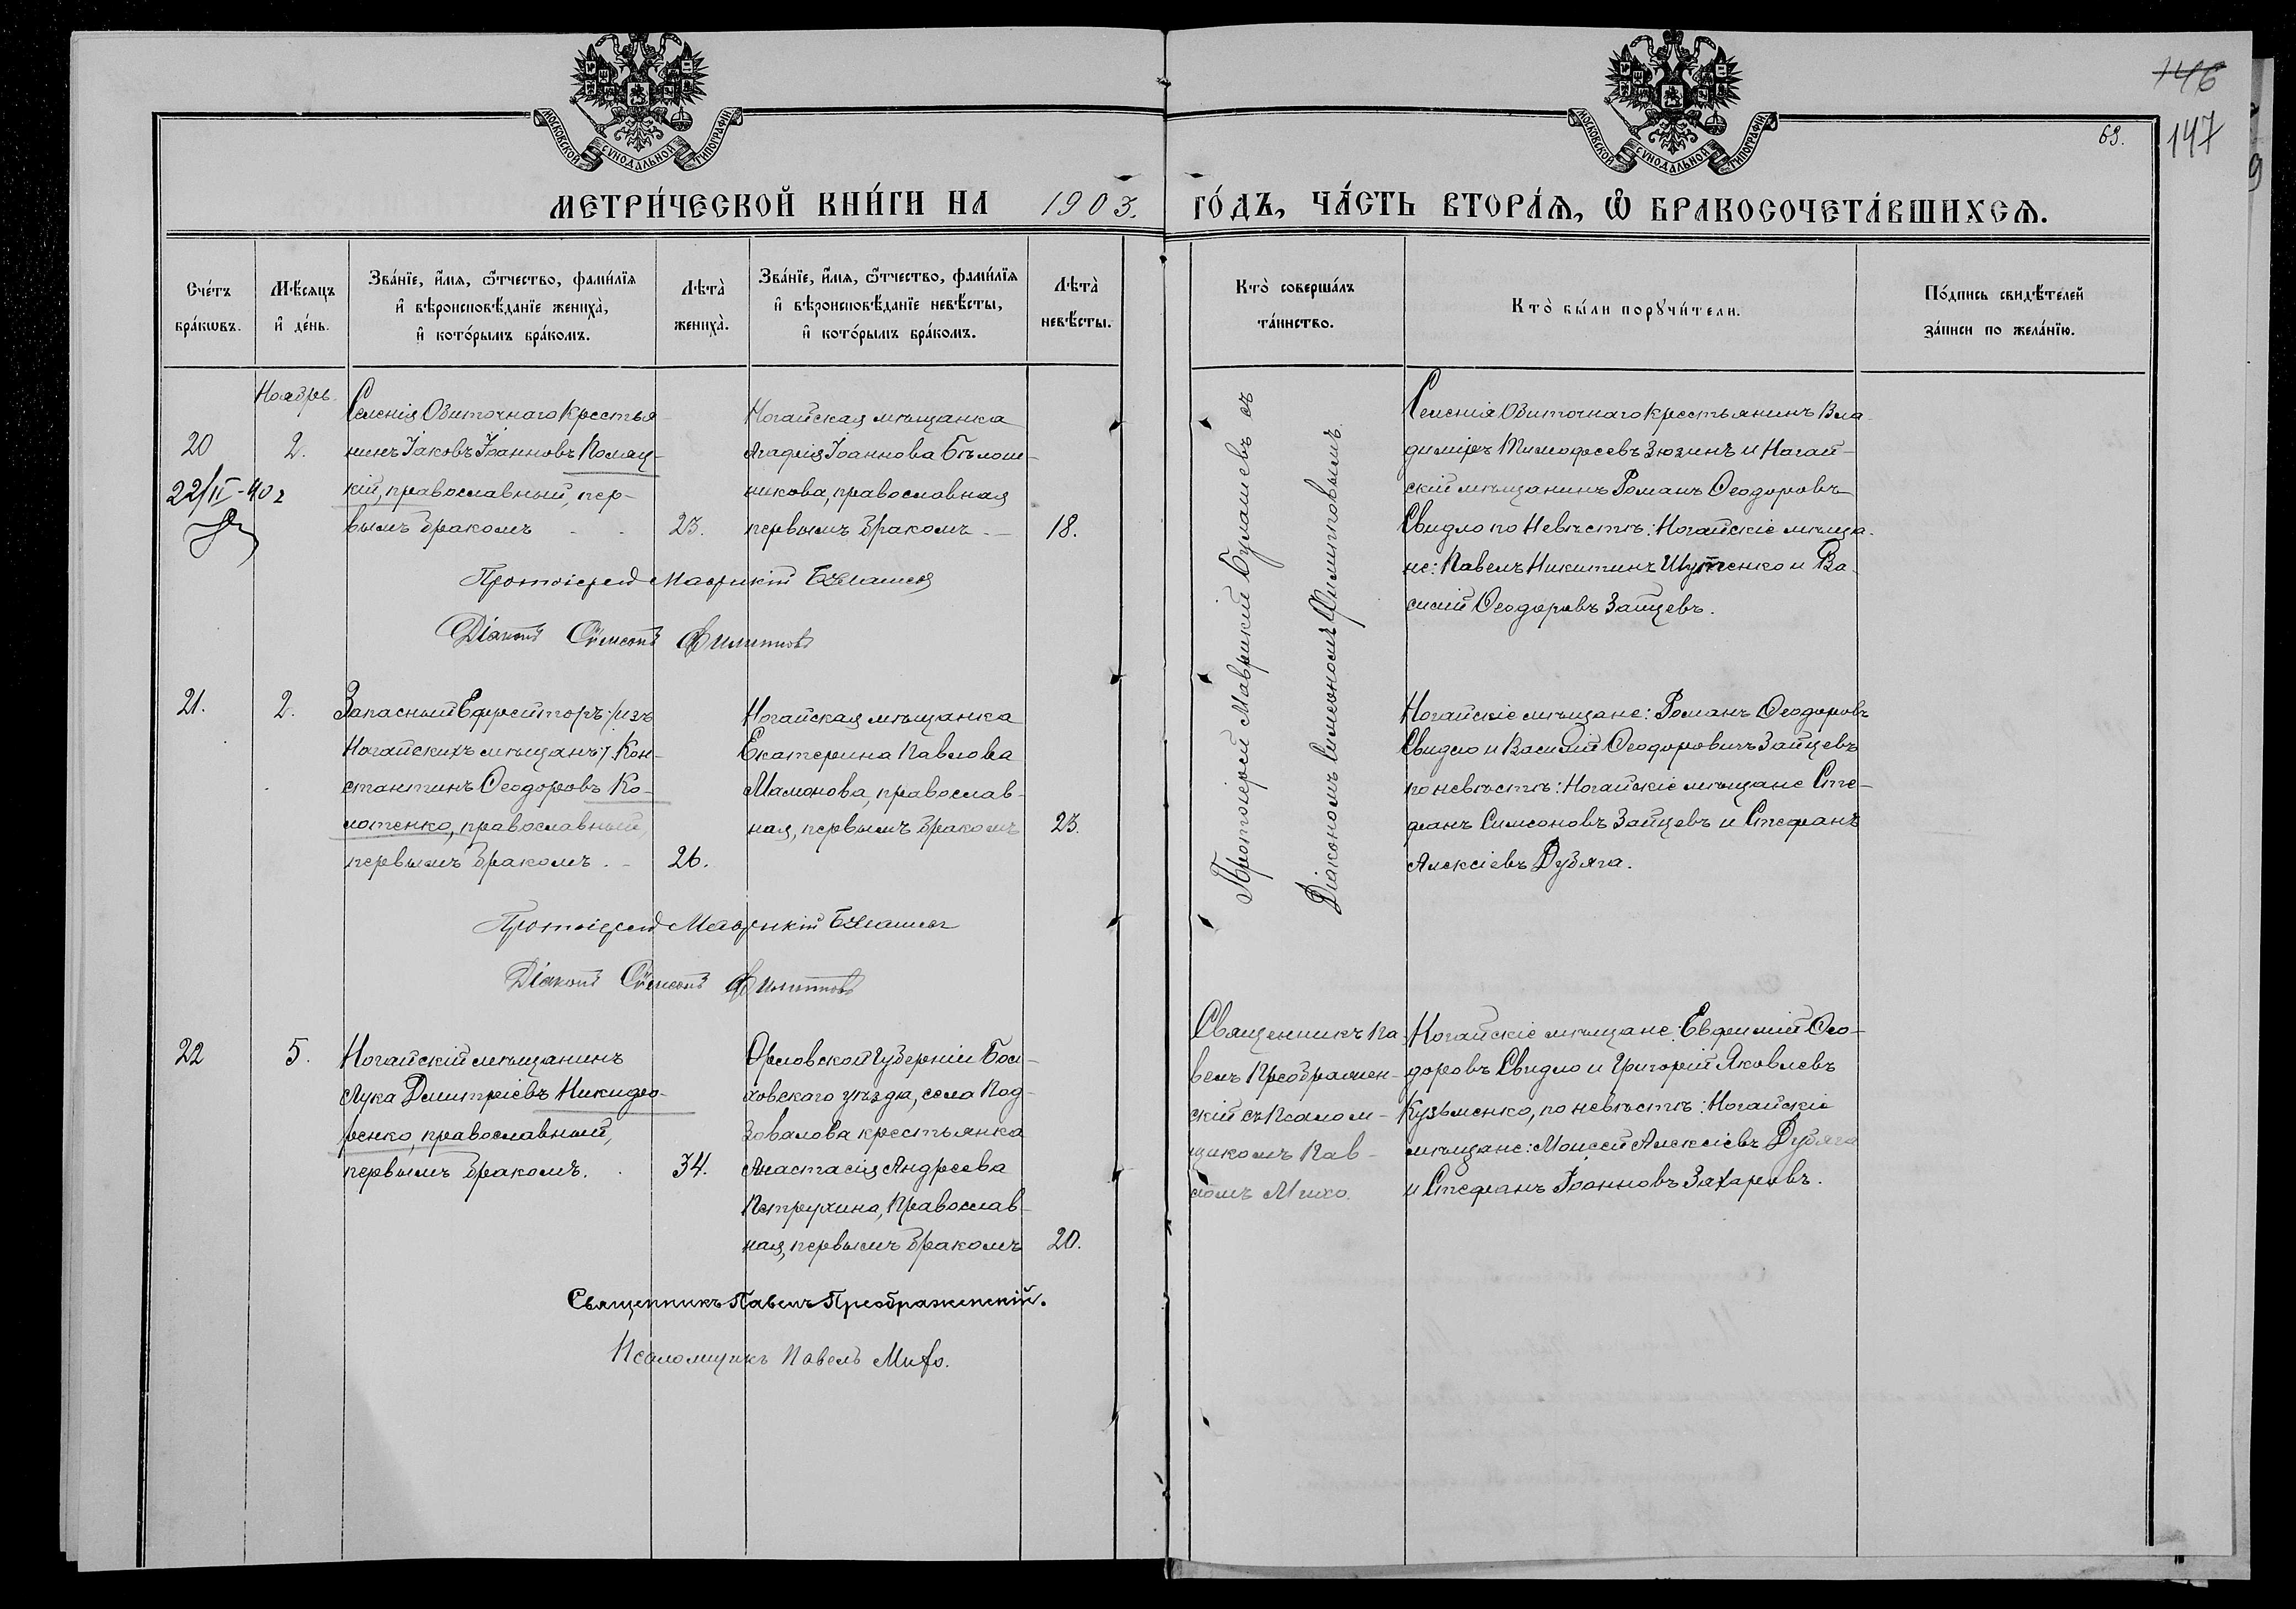 146
147
69.
МОСКОВСКОЙ СѴНОДАЛЬНОЙ ТИПОГРАФІИ
МОСКОВСКОЙ СѴНОДАЛЬНОЙ ТИПОГРАФІИ
МЕТРИ́ЧЕСКОЙ КНИ́ГИ НА 1903. ГО́ДЪ, ЧА́СТЬ ВТОРА́Ѧ, Ѽ БРАКОСОЧЕТА́ВШИХСѦ.
Сче́тъ
бра́кѡвъ.
Мѣ́сяцъ
и҆ де́нь.
Зва́нїе, и҆́мѧ, ѻ҆́тчество, фами́лїѧ
и҆ вѣроисповѣ́данїе жениха̀,
и҆ кото́рымъ бра́комъ.
Лѣта̀
жениха̀.
Зва́нїе, и҆́мѧ, ѻ҆́тчество, фами́лїѧ
и҆ вѣроисповѣ́данїе невѣ́сты,
и҆ кото́рымъ бра́комъ.
Лѣта̀
невѣ́сты.
Кто̀ соверша́лъ
та́инство.
Кто̀ бы́ли порꙋчи́тели.
По́дпись свидѣ́телей
за́писи по жела́нїю.
Ноябрь.
20
22/II-40 г
2.
Селенія Обиточнаго крестья
нинъ Іаковъ Іоанновъ Поляц-
кій, православный, пер-
вымъ бракомъ
23.
Ногайская мѣщанка
Агафія Іоаннова Бѣлош-
никова, православная
первымъ бракомъ
18.
Протоіерей Маврикій Булашевъ съ
Діакономъ Симеономъ Филипповымъ.
Селенія Обиточнаго крестьянинъ Вла-
диміръ Тимофеевъ Зюзинъ и Ногай-
скій мѣщанинъ Романъ Ѳеодоровъ
Свидло по Невѣстѣ: Ногайскіе мѣща-
не: Павелъ Никитинъ Шутенко и Ва-
силій Ѳеодоровъ Зайцевъ.
Протоіерей Маврикій Булашевъ
Діаконъ Сѵмеонъ Филипповъ
21.
2.
Запасный Ефрейторъ /:изъ
Ногайскихъ мѣщанъ:/ Кон-
стантинъ Ѳеодоровъ Ко-
лотенко, православный,
первымъ бракомъ.
26.
Ногайская мѣщанка
Екатерина Павлова
Мамонова, православ-
ная, первымъ бракомъ
23.
Ногайскіе мѣщане: Романъ Ѳеодоровъ
Свидло и Василій Ѳеодоровичъ Зайцевъ
по невѣстѣ: Ногайскіе мѣщане Сте-
фанъ Симеоновъ Зайцевъ и Стефанъ
Алексіевъ Дубяга.
Протоіерей Маврикій Булашевъ
Діаконъ Сѵмеонъ Филипповъ
22
5.
Ногайскій мѣщанинъ
Лука Димитріевъ Никифо-
ренко, православный,
первымъ бракомъ.
34.
Орловской Губерніи Бол-
ховского уѣзда, села Под-
зовалова крестьянка
Анастасія Андреева
Петрухина, Православ-
ная, первымъ бракомъ
20.
Священникъ Па-
велъ Преображен-
скій съ Псалом-
щикомъ Пав-
ломъ Михо.
Ногайскіе мѣщане: Евфимій Ѳео-
доровъ Свидло и Григорій Яковлевъ
Кузьменко, по невѣстѣ: Ногайскіе
мѣщане: Моисей Алексіевъ Дубяга
и Стефанъ Іоанновъ Захаровъ.
Священникъ Павелъ Преображенскій.
Псаломщикъ Павелъ Михо.